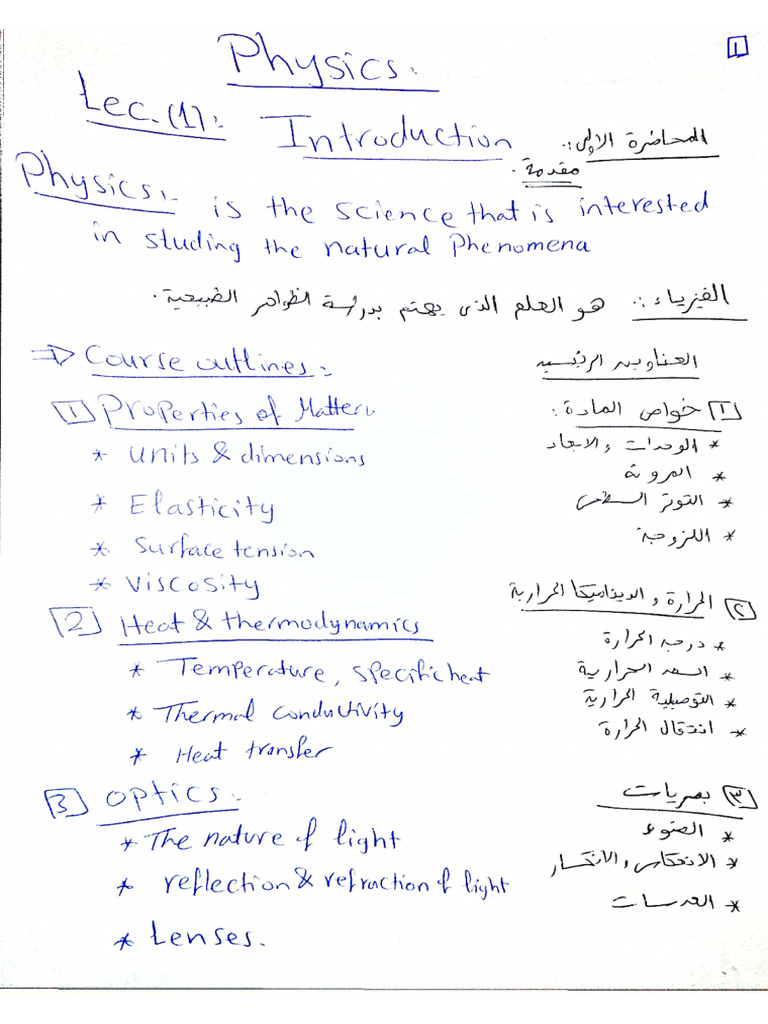 Physics:
1
Lec.(1):
Introduction
المحاضرة الاولى:
مقدمة.
Physics:- is the science that is interested
in studing the natural Phenomena
الفيزياء:. هو العلم الذى يهتم بدراسة الظواهر الطبيعية.
⇒ Course outlines:
العناوين الرئيسيه
1 Properties of Matter:
١ خواص المادة:
* units & dimensions
* الوحدات والابعاد
* Elasticity
* المرونة
* Surface tension
* التوتر السطحى
* Viscosity
* اللزوجة
2 Heat & thermodynamics
٢ الحرارة والديناميكا الحرارية
* Temperature, specific heat
* درجه الحرارة
* السعه الحرارية
* Thermal conductivity
* التوصيلية الحرارية
* Heat transfer
* انتقال الحرارة
3 optics:
٣ بصريات
* The nature of light
* الضوء
* reflection & refraction of light
* الانعكاس والانكسار
* Lenses.
* العدسات